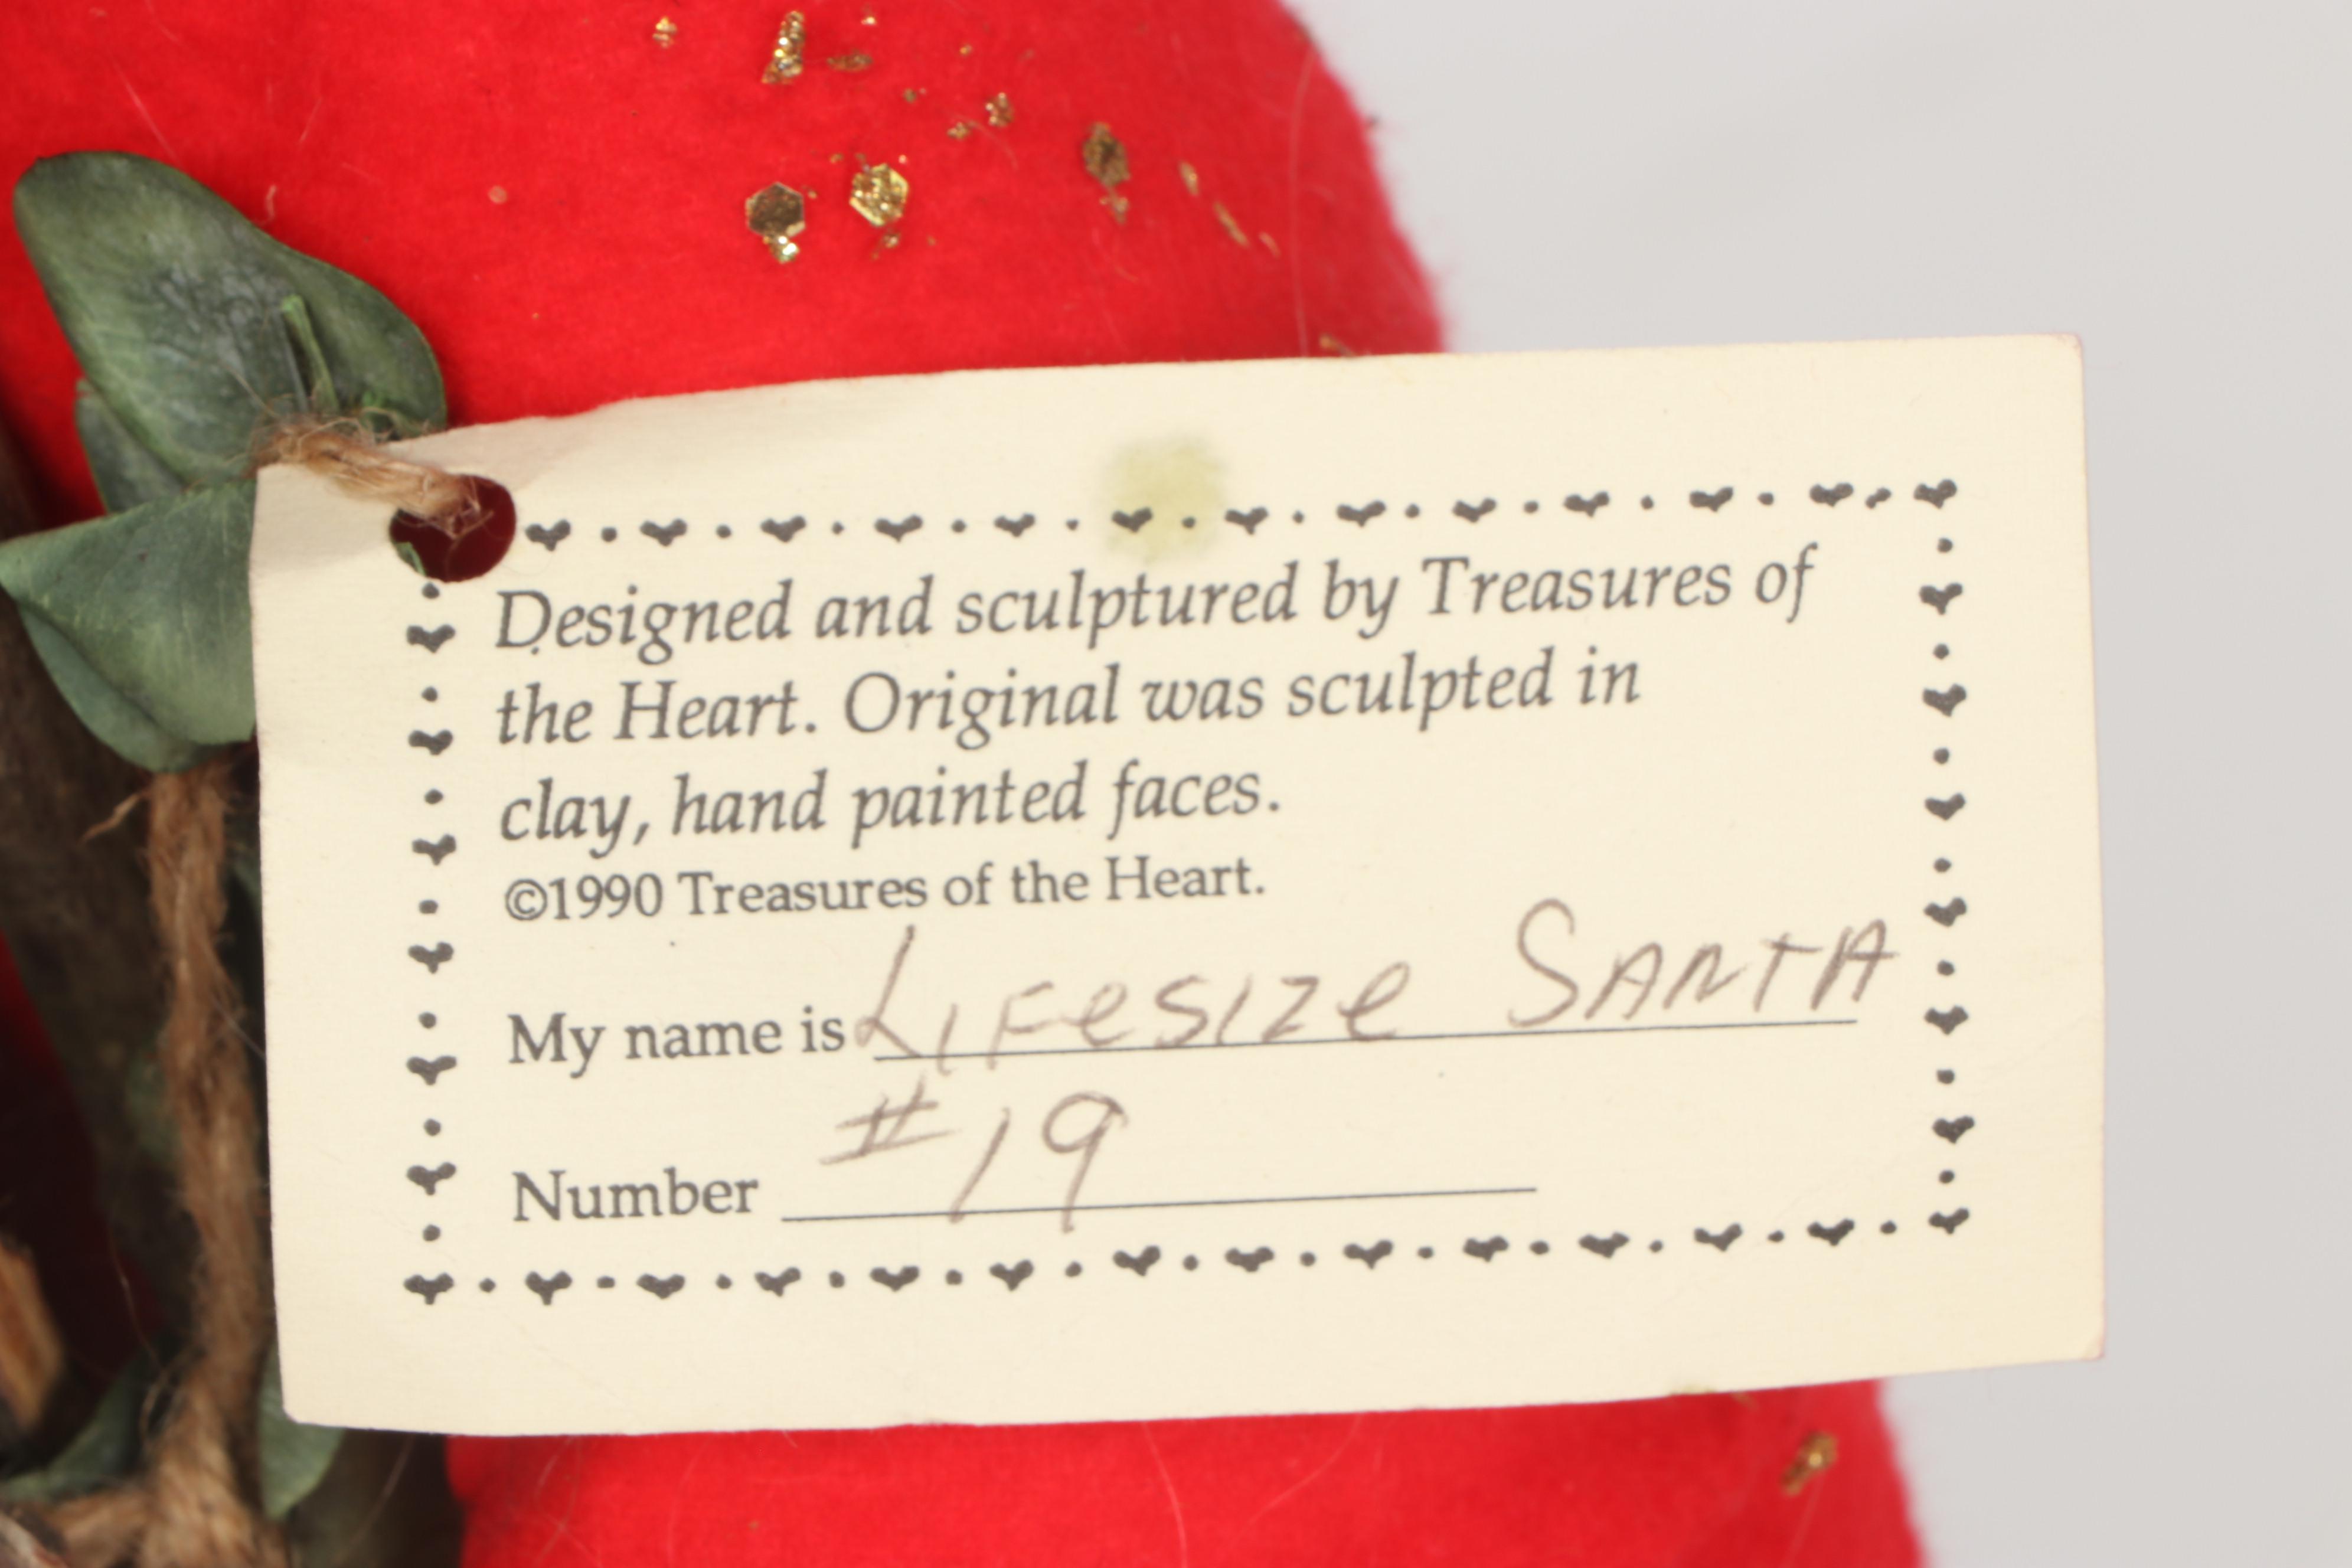 Designed and sculptured by Treasures of
the Heart. Original was sculpted in
clay, hand painted faces.
©1990 Treasures of the Heart.
My name is LIFeSIZe SANTA
Number #19